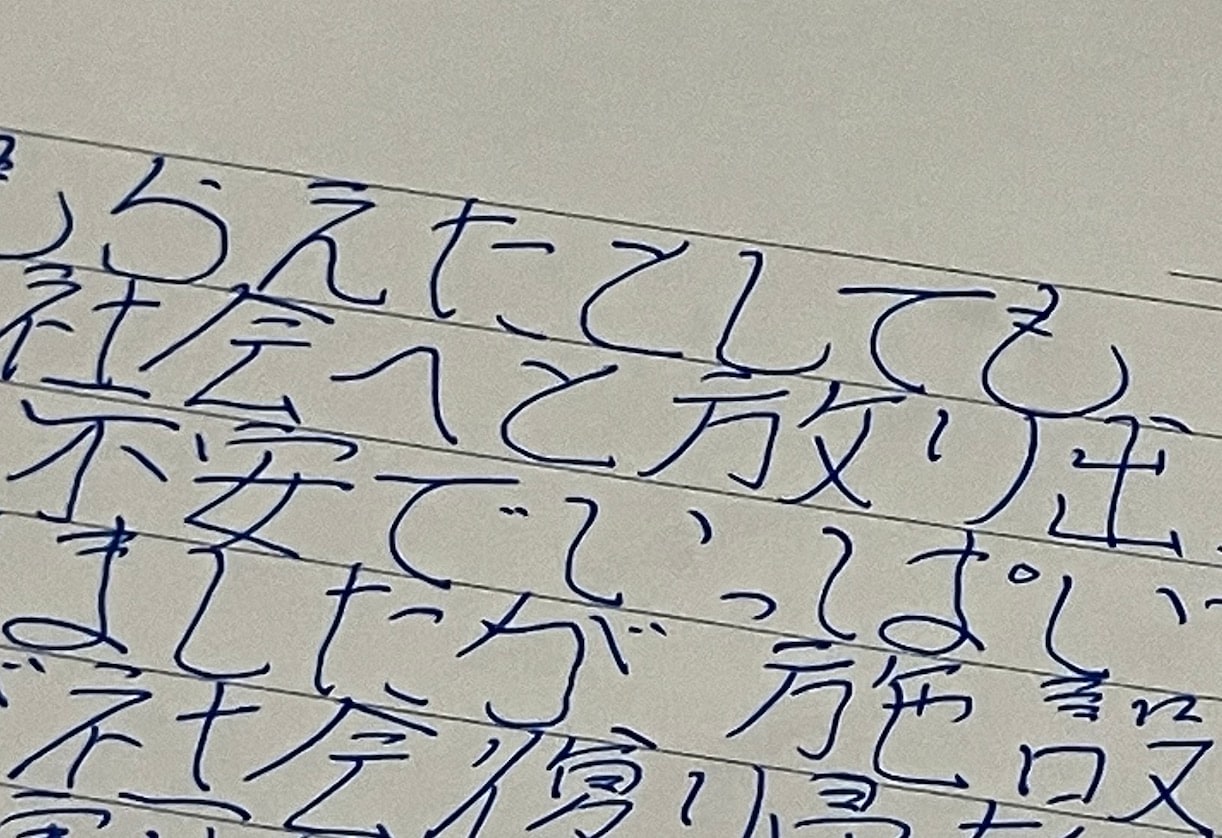 らえたとしても
社会へと放り出
不安でいっぱい
ましたが 施設
社会復り